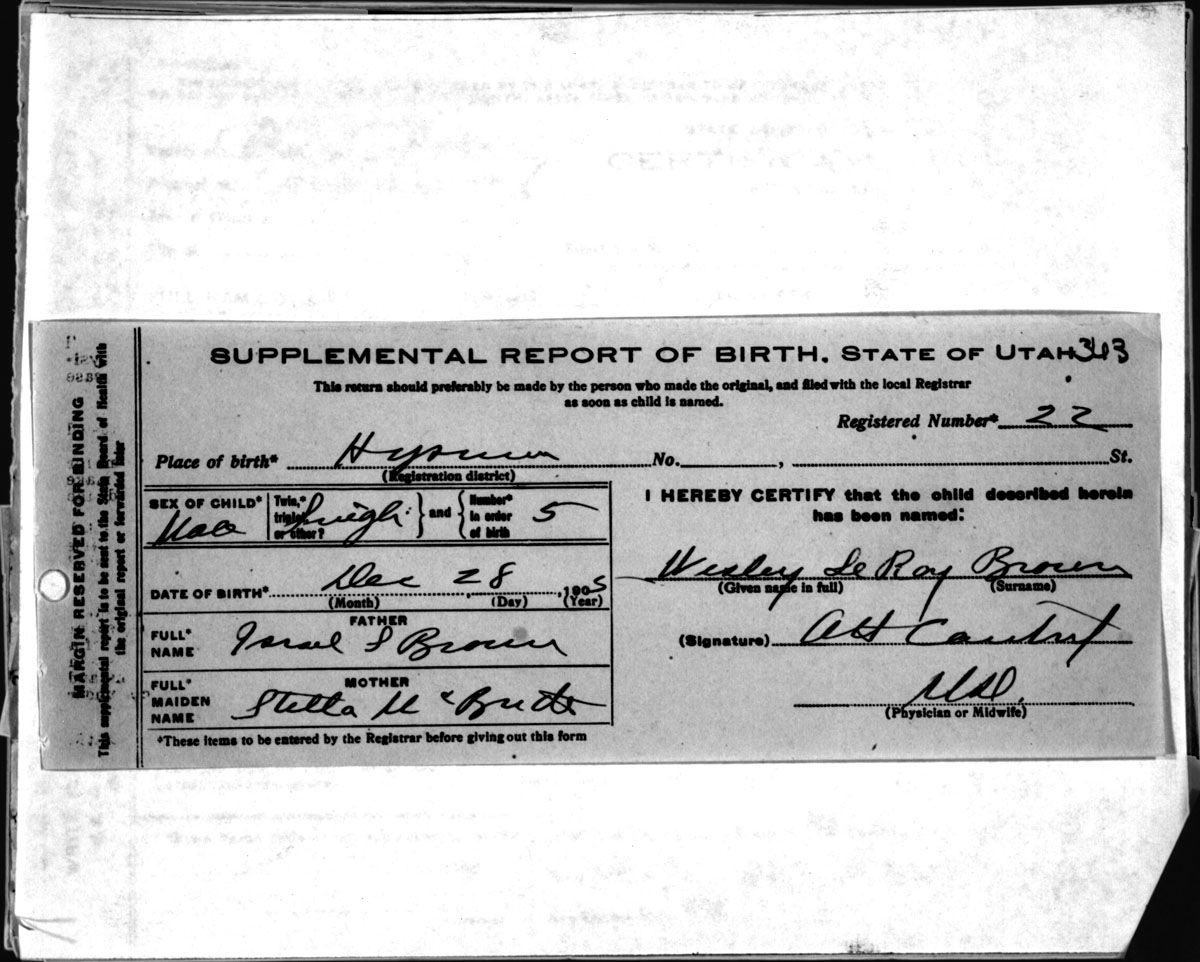 SUPPLEMENTAL REPORT OF BIRTH. STATE OF UTAH 313
This return should preferably be made by the person who made the original, and filed with the local Registrar
as soon as child is named.
Registered Number* 22
Place of birth* No. , St.
(Registration district)
SEX OF CHILD* Male Twin,* triplet or other? Single and Number* in order of birth 5
DATE OF BIRTH* Dec 28, 1905
(Month) (Day) (Year)
FATHER
FULL* NAME Israel S Brown
MOTHER
FULL* MAIDEN NAME Stella Mc Bride
*These items to be entered by the Registrar before giving out this form
I HEREBY CERTIFY that the child described herein
has been named:
Wesley Le Roy Brown
(Given name in full) (Surname)
(Signature)
M.D.
(Physician or Midwife)
MARGIN RESERVED FOR BINDING
This supplemental report is to be sent to the State Board of Health with
the original report or forwarded later